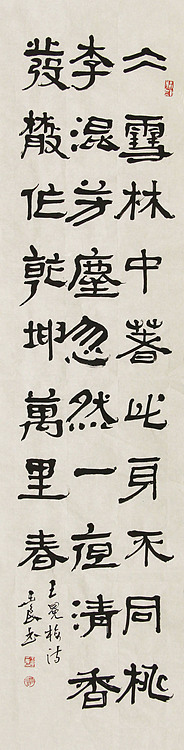 仌雪林中著此身不同桃
李混芳塵忽然一夜清香
發散作乾坤萬里春
王冕梅诗